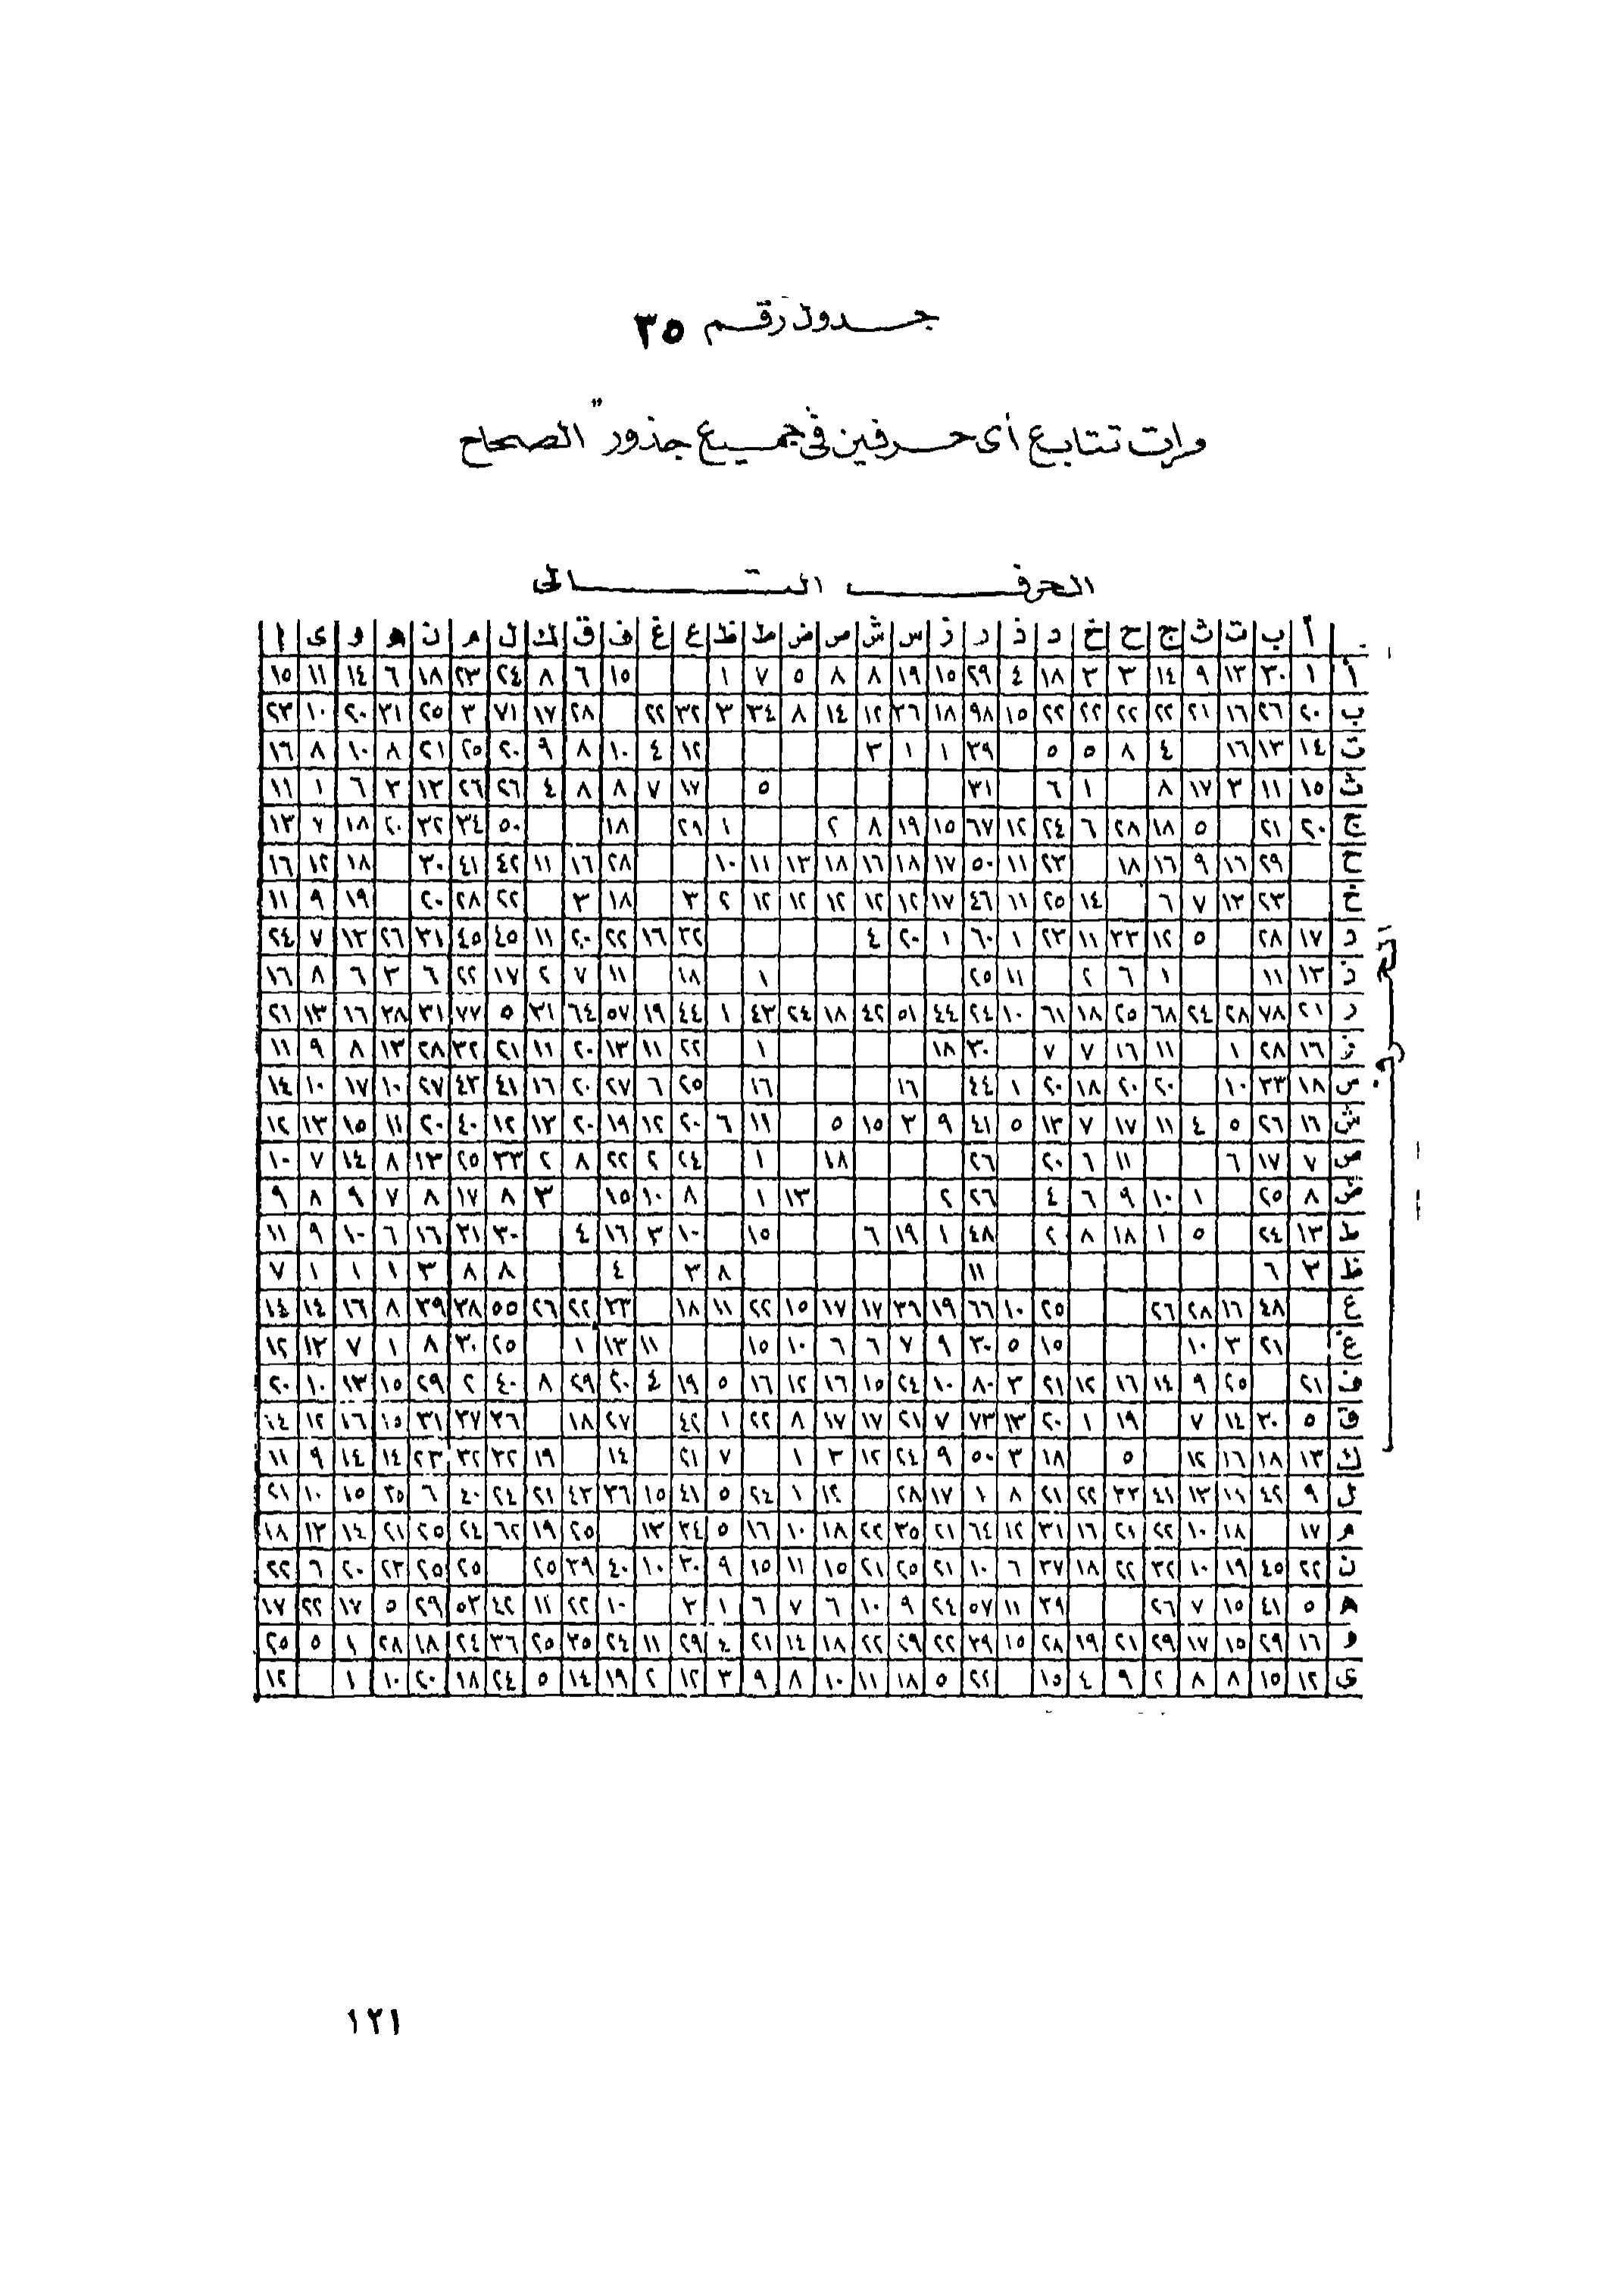 جدول رقم ٣٥
مرات تتابع أى حرفين فى جميع جذور "الصحاح
الحرف التالى
أ ب ت ث ج ح خ د ذ ر ز س ش ص ض ط ظ ع غ ف ق ك ل م ن ه و ى ا
أ ١ ٣٠ ١٣ ٩ ١٤ ٣ ٣ ١٨ ٤ ٢٩ ١٥ ١٩ ٨ ٨ ٥ ٧ ١ ١٥ ٦ ٨ ٢٤ ٢٣ ١٨ ٦ ١٤ ١١ ١٥
ب ٢٠ ٢٦ ١٦ ٢١ ٢٢ ٢٢ ٢٢ ٢٢ ١٥ ٩٨ ١٨ ٣٦ ١٢ ١٤ ٨ ٣٤ ٣ ٣٢ ٢٢ ٢٨ ١٧ ٧١ ٣ ٢٥ ٢١ ٢٠ ١٠ ٢٣
ت ١٤ ١٣ ١٦ ٤ ٨ ٥ ٥ ٣٩ ١ ١ ٣ ١٢ ٤ ١٠ ٨ ٩ ٢٠ ٢٥ ٢١ ٨ ١٠ ٨ ١٦
ث ١٥ ١١ ٣ ١٧ ٨ ١ ٦ ٣١ ٥ ١٧ ٧ ٨ ٨ ٤ ٢٦ ٢٦ ١٣ ٣ ٦ ١ ١١
ج ٢٠ ٢١ ٥ ١٨ ٢٨ ٦ ٢٤ ١٢ ٦٧ ١٥ ١٩ ٨ ٢ ١ ٢٩ ١٨ ٥٠ ٣٤ ٣٢ ٢٠ ١٨ ٧ ١٣
ح ٢٩ ١٦ ٩ ١٦ ١٨ ٢٣ ١١ ٥٠ ١٧ ١٨ ١٦ ١٨ ١٣ ١١ ١٠ ٢٨ ١٦ ١١ ٤٢ ٤١ ٣٠ ١٨ ١٢ ١٦
خ ٢٣ ١٣ ٧ ٦ ١٤ ٢٥ ١١ ٤٦ ١٧ ١٢ ١٢ ١٢ ١٢ ١٢ ٢ ٣ ١٨ ٣ ٢٢ ٢٨ ٢٠ ١٩ ٩ ١١
د ١٧ ٢٨ ٥ ١٢ ٢٣ ١١ ٢٣ ١ ٦٠ ١ ٢٠ ٤ ٣٢ ١٦ ٢٢ ٢٠ ١١ ٤٥ ٤٥ ٣١ ٢٦ ١٣ ٧ ٢٤
ذ ١٣ ١١ ١ ٦ ٢ ١١ ٢٥ ١ ١٨ ١١ ٧ ٢ ١٧ ٢٢ ٦ ٣ ٦ ٨ ١٦
ر ٢١ ٧٨ ٢٨ ٢٤ ٦٨ ٢٥ ١٨ ٦١ ١٠ ٢٤ ٤٤ ٥١ ٤٢ ١٨ ٢٤ ٤٣ ١ ٤٤ ١٩ ٥٧ ٦٤ ٣١ ٥ ٧٧ ٣١ ٣٨ ١٦ ١٣ ٢١
ز ١٦ ٢٨ ١ ١١ ١٦ ٧ ٧ ٣٠ ١٨ ١ ٢٢ ١١ ١٣ ٢٠ ١١ ٢١ ٣٢ ٢٨ ١٣ ٨ ٩ ١١
س ١٨ ٢٣ ١٠ ٢٠ ٢٠ ١٨ ٢٠ ١ ٤٤ ١٦ ١٦ ٢٥ ٦ ٢٧ ٢٠ ١٦ ٤١ ٤٣ ٢٧ ١٠ ١٧ ١٠ ١٤
ش ١٦ ٢٦ ٥ ٤ ١١ ١٧ ٧ ١٣ ٥ ٤١ ٩ ٣ ١٥ ٥ ١١ ٦ ٢٠ ١٢ ١٩ ٢٠ ١٣ ١٢ ٤٠ ٢٠ ١١ ١٥ ١٣ ١٢
ص ٧ ١٧ ٦ ١١ ٦ ٢٠ ٢٦ ١٨ ١ ٢٤ ٢ ٢٢ ٨ ٢ ٢٣ ٢٥ ١٣ ٨ ١٤ ٧ ١٠
ض ٨ ٢٥ ١ ١٠ ٩ ٦ ٤ ٢٦ ٢ ١٣ ١ ٨ ١٠ ١٥ ٣ ٨ ١٧ ٨ ٧ ٩ ٨ ٩
ط ١٣ ٢٤ ٥ ١ ١٨ ٨ ٢ ٤٨ ١ ١٩ ٦ ١٥ ١٠ ٣ ١٦ ٤ ٣٠ ٢١ ١٦ ٦ ١٠ ٩ ١١
ظ ٣ ٦ ١١ ٨ ٣ ٤ ٨ ٨ ٣ ١ ١ ١ ٧
ع ٤٨ ١٦ ٢٨ ٢٦ ٢٥ ١٠ ٦٦ ١٩ ٣٦ ١٧ ١٧ ١٥ ٢٢ ١١ ١٨ ٢٣ ٢٢ ٢٦ ٥٥ ٣٨ ٣٩ ٨ ١٦ ١٤ ١٤
غ ٢١ ٣ ١٠ ١٥ ٥ ٣٠ ٩ ٧ ٦ ٦ ١٠ ١٥ ١١ ١٣ ١ ٢٥ ٣٠ ٨ ١ ٧ ١٣ ١٢
ف ٢١ ٢٥ ٩ ١٤ ١٦ ١٢ ٢١ ٣ ٨٠ ١٠ ٢٤ ١٥ ١٦ ١٢ ١٦ ٥ ١٩ ٤ ٢٠ ٢٩ ٨ ٤٠ ٢ ٢٩ ١٥ ١٣ ١٠ ٢٠
ق ٥ ٣٠ ١٤ ٧ ١٩ ١ ٢٠ ١٣ ٧٣ ٧ ٢١ ١٧ ١٧ ٨ ٢٢ ١ ٤٢ ٢٧ ١٨ ٣٦ ٣٧ ٣١ ١٥ ١٦ ١٢ ١٤
ك ١٣ ١٨ ١٦ ١٢ ٥ ١٨ ٣ ٥٠ ٩ ٢٤ ١٢ ٣ ١ ٧ ٢١ ١٤ ١٩ ٣٢ ٣٢ ٢٣ ١٤ ١٤ ٩ ١١
ل ٩ ٤٢ ١١ ١٣ ٤١ ٣٢ ٢٢ ٢١ ٨ ١ ١٧ ٢٨ ١٢ ١ ٢٤ ٥ ٤١ ١٥ ٣٦ ٤٣ ٢١ ٢٤ ٤٠ ٦ ٣٥ ١٥ ١٠ ٢١
م ١٧ ١٨ ١٠ ٢٢ ٢١ ١٦ ٣١ ١٢ ٦٤ ٢١ ٣٥ ٢٢ ١٨ ١٠ ١٦ ٥ ٣٤ ١٣ ٢٥ ١٩ ٦٢ ٢٤ ٢٥ ٢١ ١٤ ١٣ ١٨
ن ٢٢ ٤٥ ١٩ ١٠ ٣٢ ٢٢ ١٨ ٣٧ ٦ ١٠ ٢١ ٢٥ ٢١ ١٥ ١١ ١٥ ٩ ٣٠ ١٠ ٤٠ ٣٩ ٢٥ ٢٥ ٢٥ ٢٣ ٢٠ ٦ ٢٢
ه ٥ ٤١ ١٥ ٧ ٢٦ ٣٩ ١١ ٥٧ ٢٤ ٩ ١٠ ٦ ٧ ٦ ١ ٣ ١٠ ٢٢ ١١ ٤٢ ٥٣ ٢٩ ٥ ١٧ ٢٢ ١٧
و ١٦ ٢٩ ١٥ ١٧ ٢٩ ٢١ ١٩ ٢٨ ١٥ ٣٩ ٢٢ ٢٩ ٢٢ ١٨ ١٤ ٢١ ٤ ٢٩ ١١ ٢٤ ٣٥ ٢٥ ٣٦ ٢٤ ١٨ ٢٨ ١ ٥ ٢٥
ى ١٢ ١٥ ٨ ٨ ٢ ٩ ٤ ١٥ ٢٢ ٥ ١٨ ١١ ١٠ ٨ ٩ ٣ ١٢ ٢ ١٩ ١٤ ٥ ٢٤ ١٨ ٢٠ ١٠ ١ ١٢
الحرف
١٢١